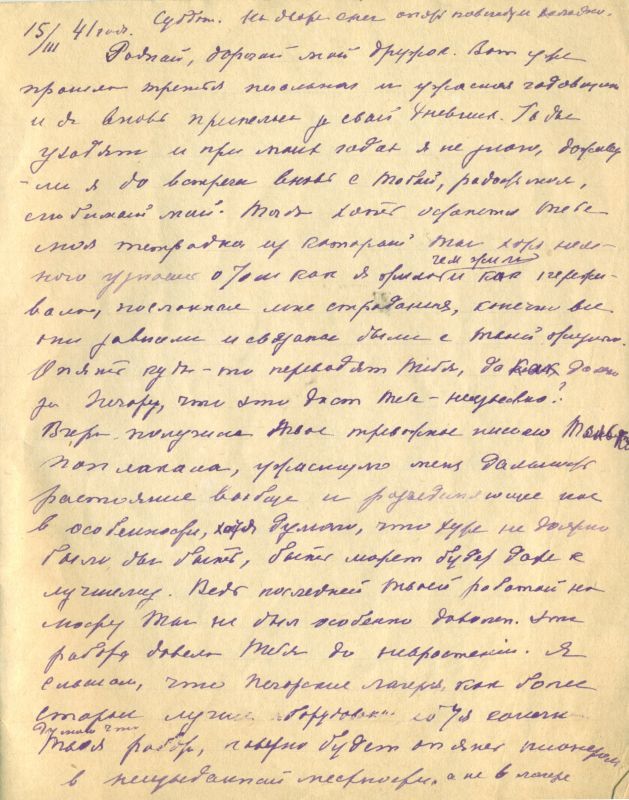 15/III 41 года. Суббот. На дворе снег опять повсюду и холодно.
Родной, дорогой мой дружок. Вот уже
прошла третья печальная и ужасная годовщина
и я вновь принялась за свой дневник. Годы
уходят и при моих годах я не знаю, доживу
-ли я до встречи вновь с Тобой, радость моя,
любимый мой. Тогда хотя останется Тебе
моя тетрадка из которой Ты хоть нем-
ного узнаешь о том как я жила чем жила и как пережи-
вала, посланные мне страдания, конечно все
они зависели и связаны были с Твоей жизнью.
Опять куда-то переводят Тебя, да как далеко
за Печору, что это даст Тебе - неизвестно?
Вчера получила Твое тревожное письмо Только
поплакала, ужаснуло меня дальность
расстояние вообще и разъединяющее нас
в особенности, хотя думаю, что хуже не должно
было бы быть, быть может будет даже к
лучшему. Ведь последней Твоей работой на
мосту Ты не был особенно доволен. Эта
работа довела Тебя до неврастении. Я
слышала, что Печорские лагеря, как более
старые лучше оборудованы, хотя конечно
думаю что Твоя работа, наверно будет опять пионером
в неизведанной местности, а не в лагере